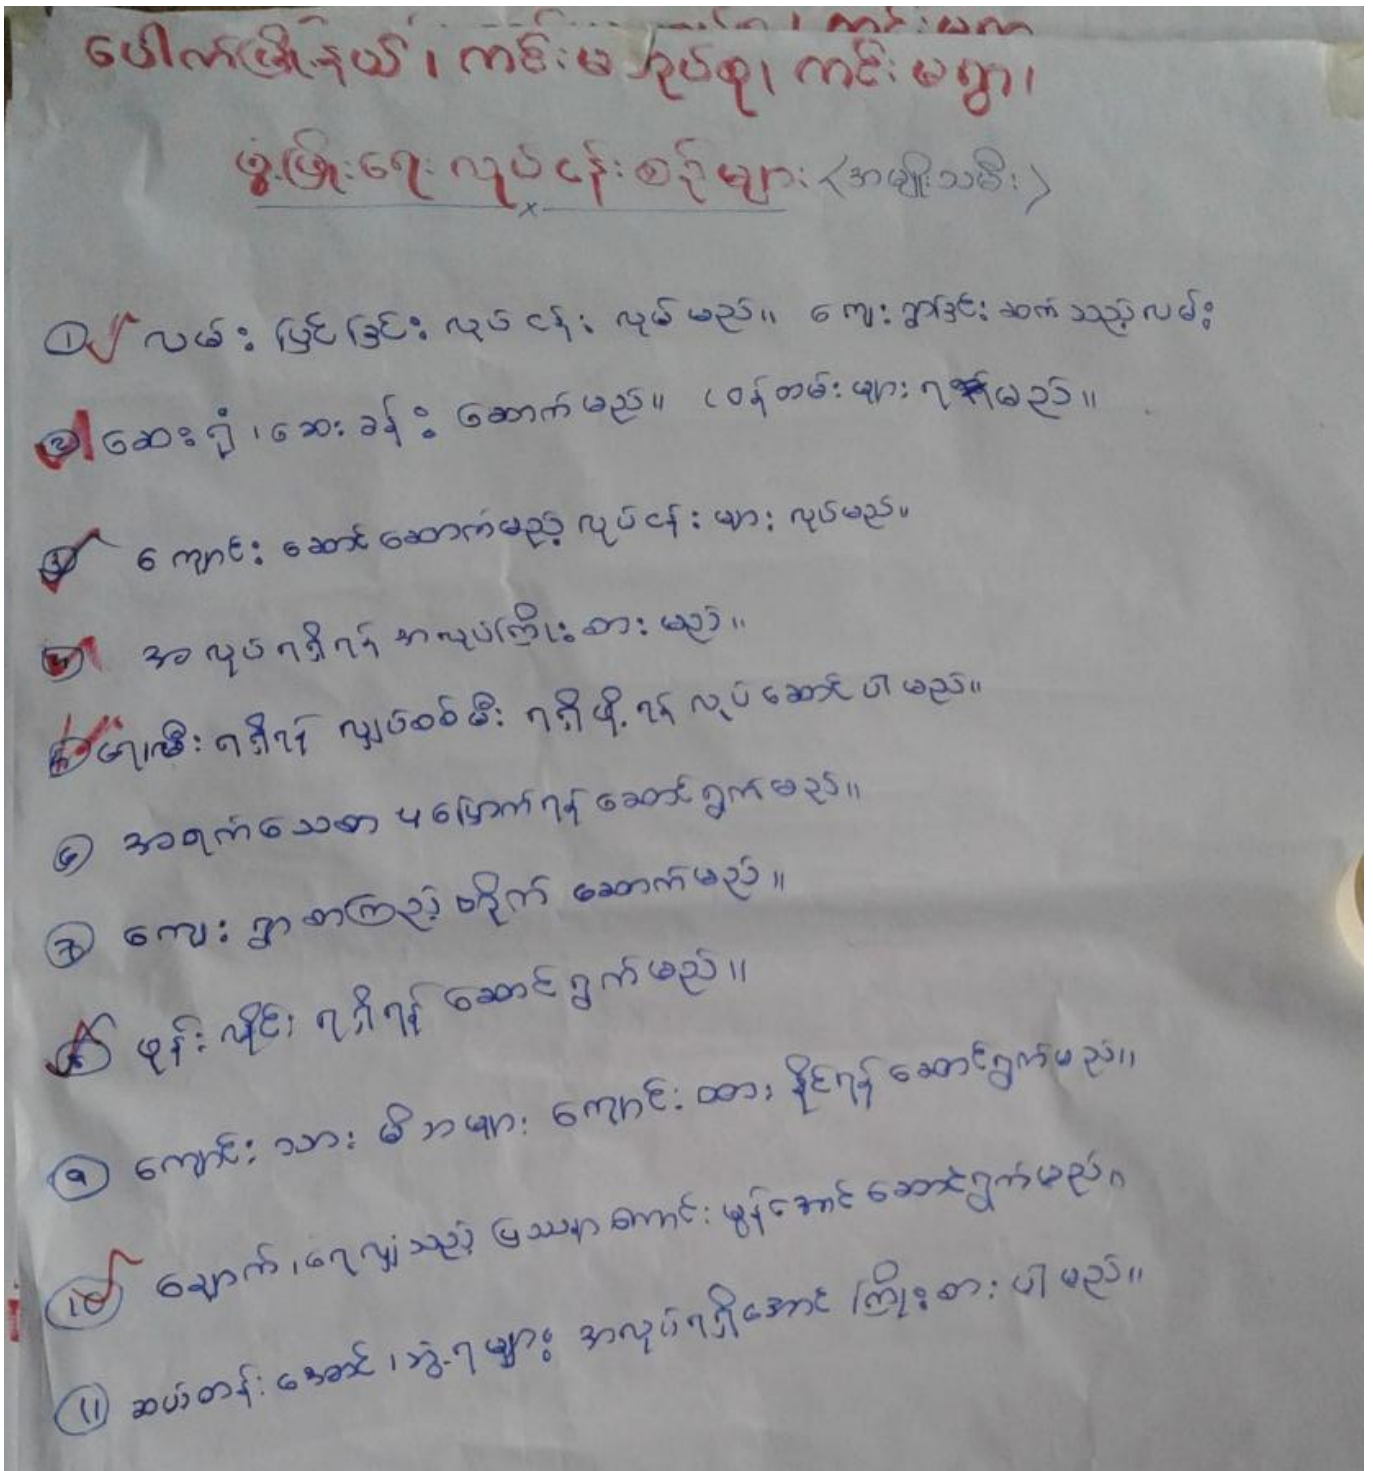 ပေါက်မြို့နယ်၊ ကင်းမအုပ်စု၊ ကင်းမရွာ၊
ဖွံ့ဖြိုးရေးလုပ်ငန်းစဉ်များ (အမျိုးသမီး)
၁ လမ်းပြင်ခြင်းလုပ်ငန်းလုပ်မည်။ ကျေးရွာခြင်းဆက်သည့်လမ်း
၂ ဆေးရုံ၊ ဆေးခန်း ဆောက်မည်။ ဝန်ထမ်းများ ရမည်။
၃ ကျောင်းဆောင်ဆောက်မည့် လုပ်ငန်းများ လုပ်မည်။
၄ အလုပ်ရရှိရန် အလုပ်ကြိုးစားမည်။
၅ ရရှိရန် လျှပ်စစ်မီး ရရှိဖို့ရန် လုပ်ဆောင်ပါမည်။
၆ အရက်သေစာ ပပြောက်ရန် ဆောင်ရွက်မည်။
၇ ကျေးရွာစာကြည့်တိုက် ဆောက်မည်။
၈ ဖုန်းလိုင်း ရရှိရန် ဆောင်ရွက်မည်။
၉ ကျောင်းသားမိဘများ ကျောင်းထားနိုင်ရန် ဆောင်ရွက်မည်။
၁၀ ချောက်၊ ရေလျှံသည့် ပြဿနာ ကောင်းမွန်အောင် ဆောင်ရွက်မည်။
၁၁ ဆယ်တန်းအောင်၊ ဘွဲ့ရများ အလုပ်ရရှိအောင် ကြိုးစားပါမည်။